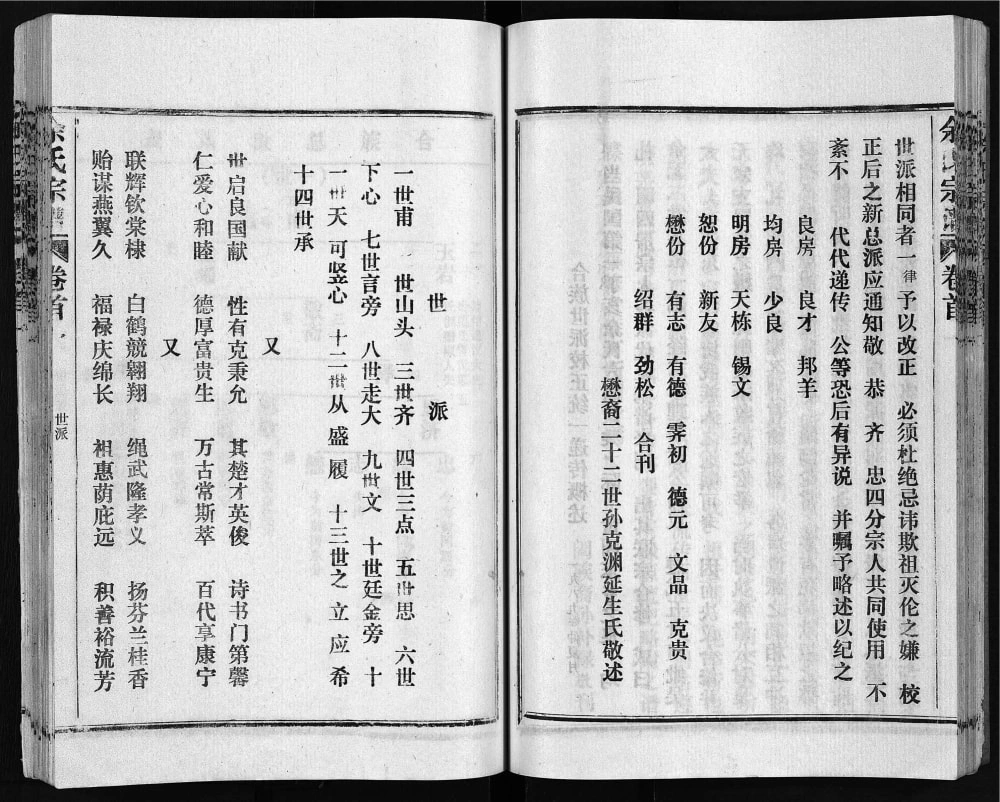 余氏宗谱 卷首
世派相同者一律予以改正 必须杜绝忌讳欺祖灭伦之嫌 校
正后之新总派应通知敬 恭 齐 忠四分宗人共同使用 不
紊不 代代递传 公等恐后有异说 并嘱予略述以纪之
良房 良才 邦羊
均房 少良
明房 天栋 锡文
恕份 新友
懋份 有志 有德 霁初 德元 文品 克贵
绍群 劲松 合刊
懋裔二十二世孙克渊延生氏敬述
世 派
一世甫 世山头 三世齐 四世三点 五世思 六世
下心 七世言旁 八世走大 九世文 十世廷金旁 十
一世天 可竖心 十二世从盛履 十三世之 立 应 希
十四世承
又
世启良国献 性有克秉允 其楚才英俊 诗书门第馨
仁爱心和睦 德厚富贵生 万古常斯萃 百代享康宁
又
联辉钦棠棣 白鹤競翱翔 绳武隆孝义 扬芬兰桂香
贻谋燕翼久 福禄庆绵长 祖惠荫庇远 积善裕流芳
余氏宗谱 卷首 世派